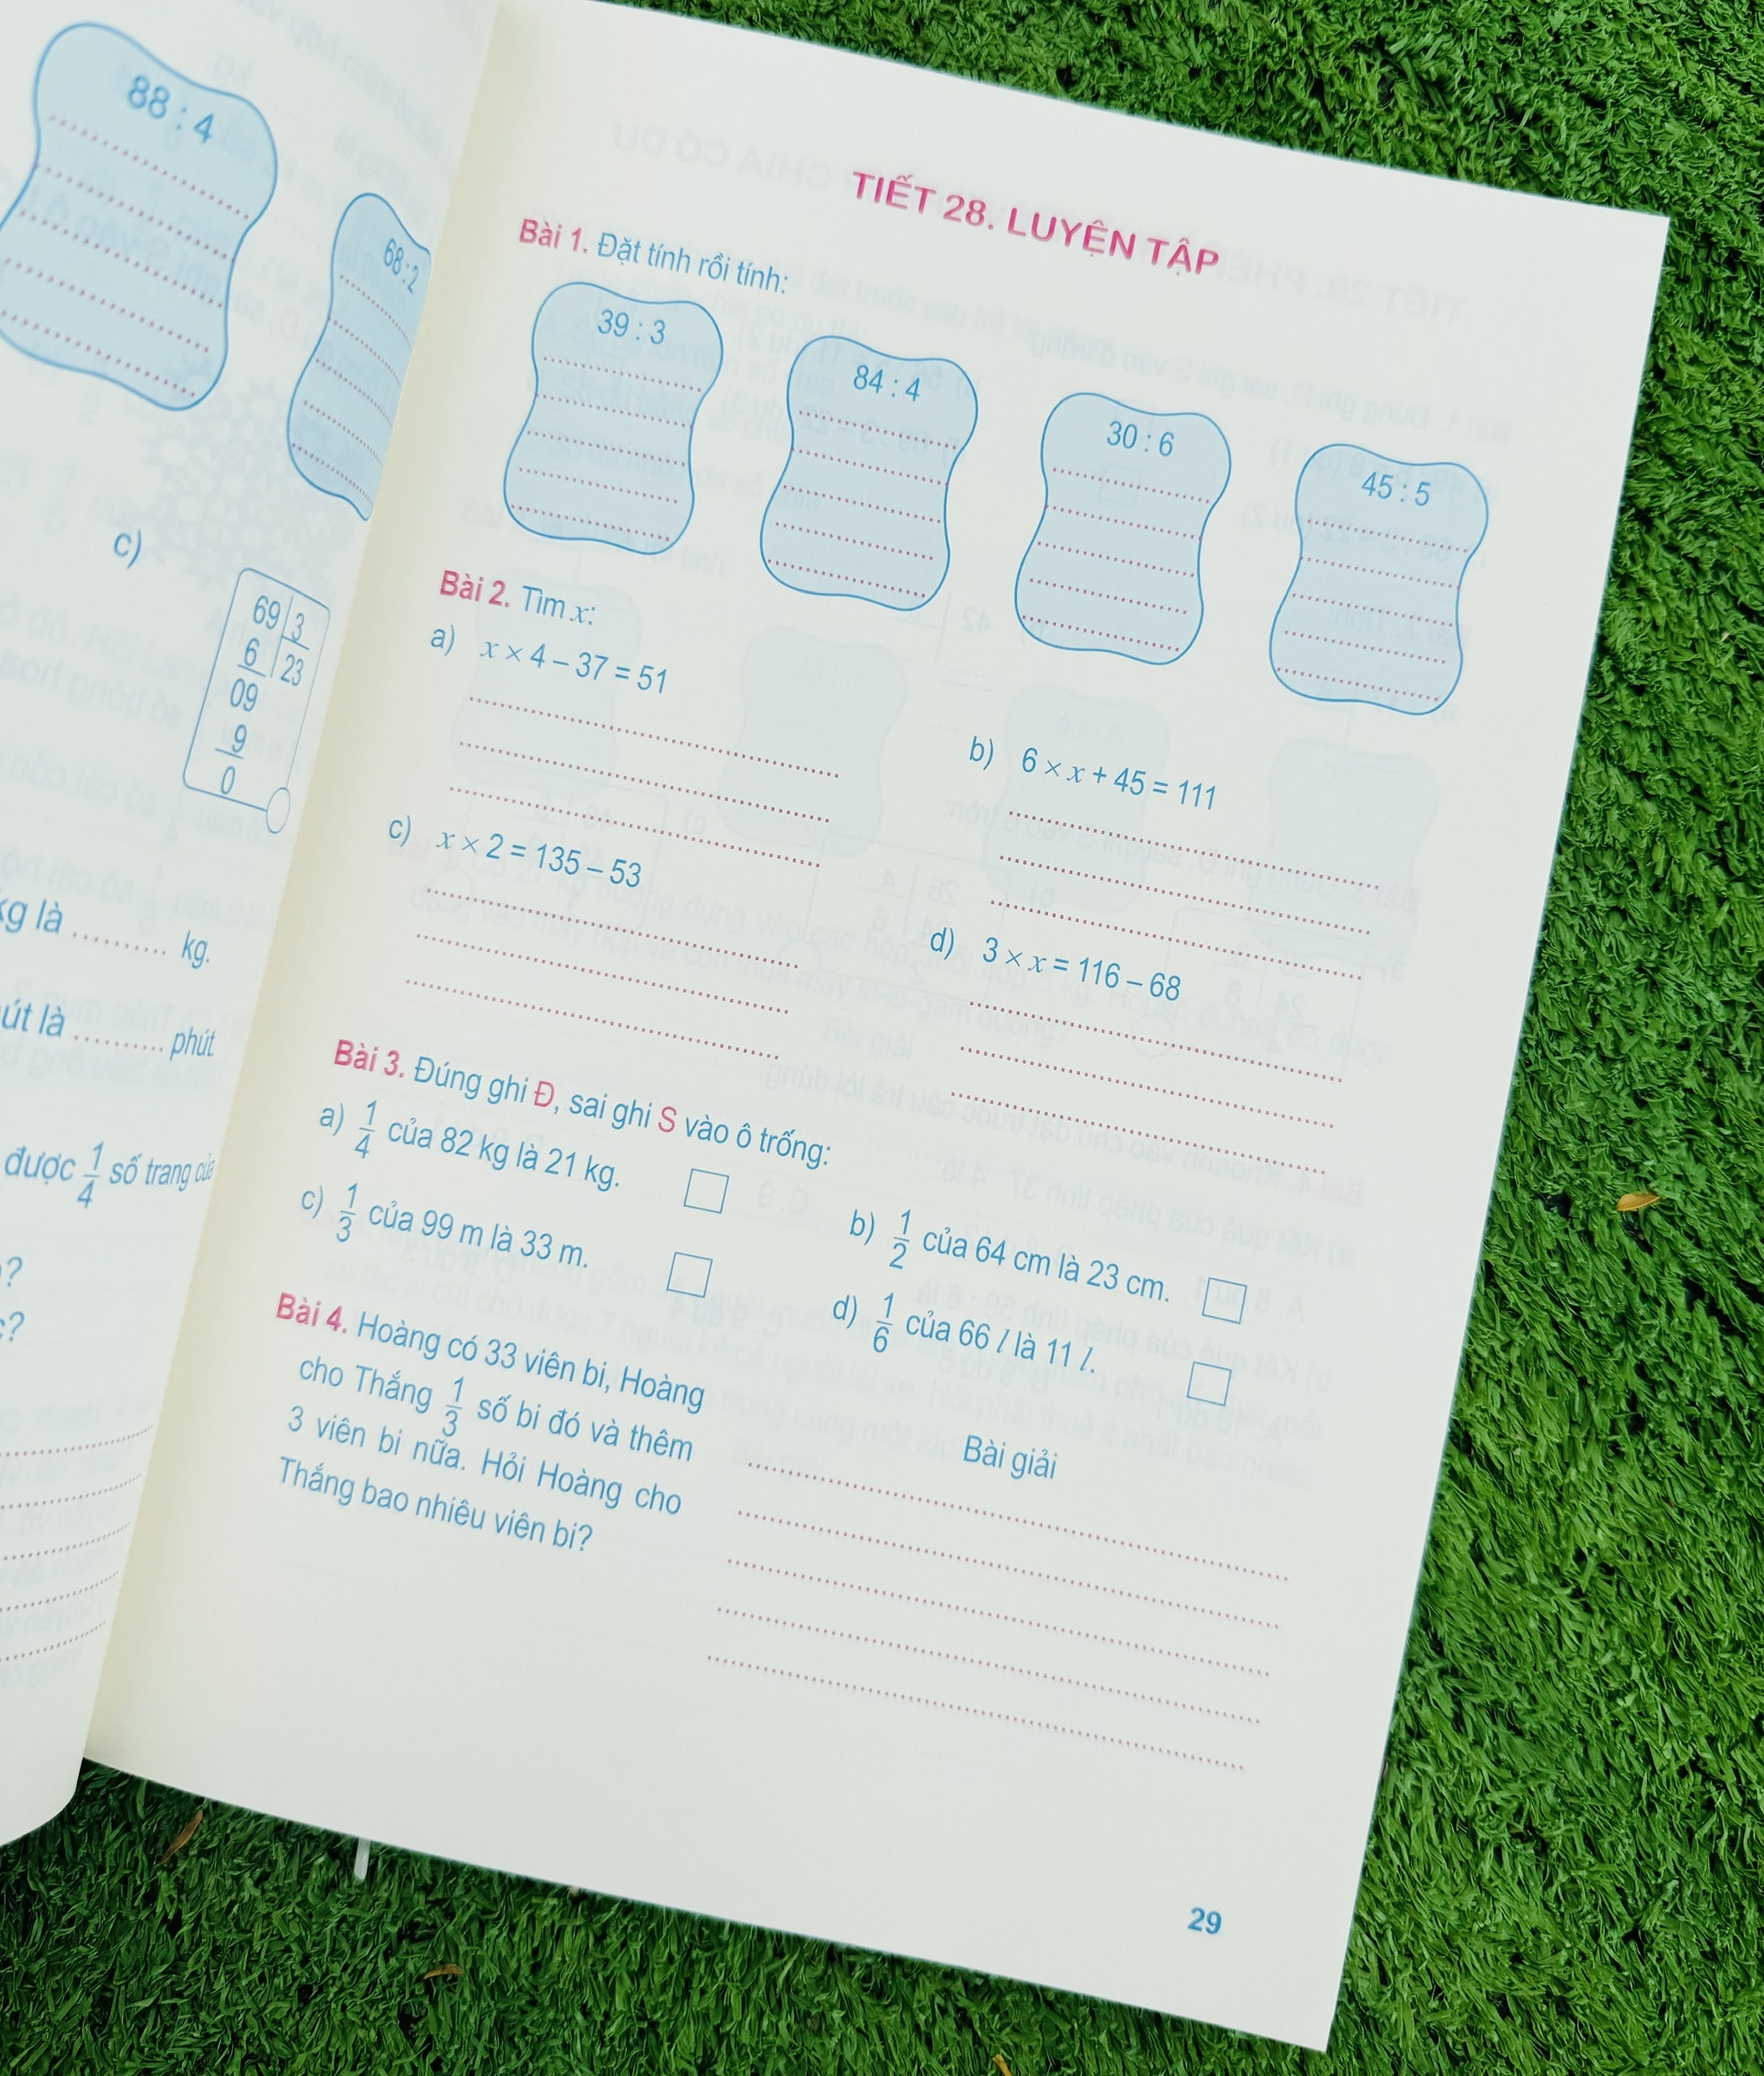 88 : 4
68 : 2
c)
69 3
6 23
09
9
0
kg là .......... kg.
út là .......... phút
được 1/4 số trang của
?
?
TIẾT 28. LUYỆN TẬP
Bài 1. Đặt tính rồi tính:
39 : 3
84 : 4
30 : 6
45 : 5
Bài 2. Tìm x:
a) x × 4 – 37 = 51
b) 6 × x + 45 = 111
c) x × 2 = 135 – 53
d) 3 × x = 116 – 68
Bài 3. Đúng ghi Đ, sai ghi S vào ô trống:
a) 1/4 của 82 kg là 21 kg.
b) 1/2 của 64 cm là 23 cm.
c) 1/3 của 99 m là 33 m.
d) 1/6 của 66 l là 11 l.
Bài 4. Hoàng có 33 viên bi, Hoàng
cho Thắng 1/3 số bi đó và thêm
3 viên bi nữa. Hỏi Hoàng cho
Thắng bao nhiêu viên bi?
Bài giải
29